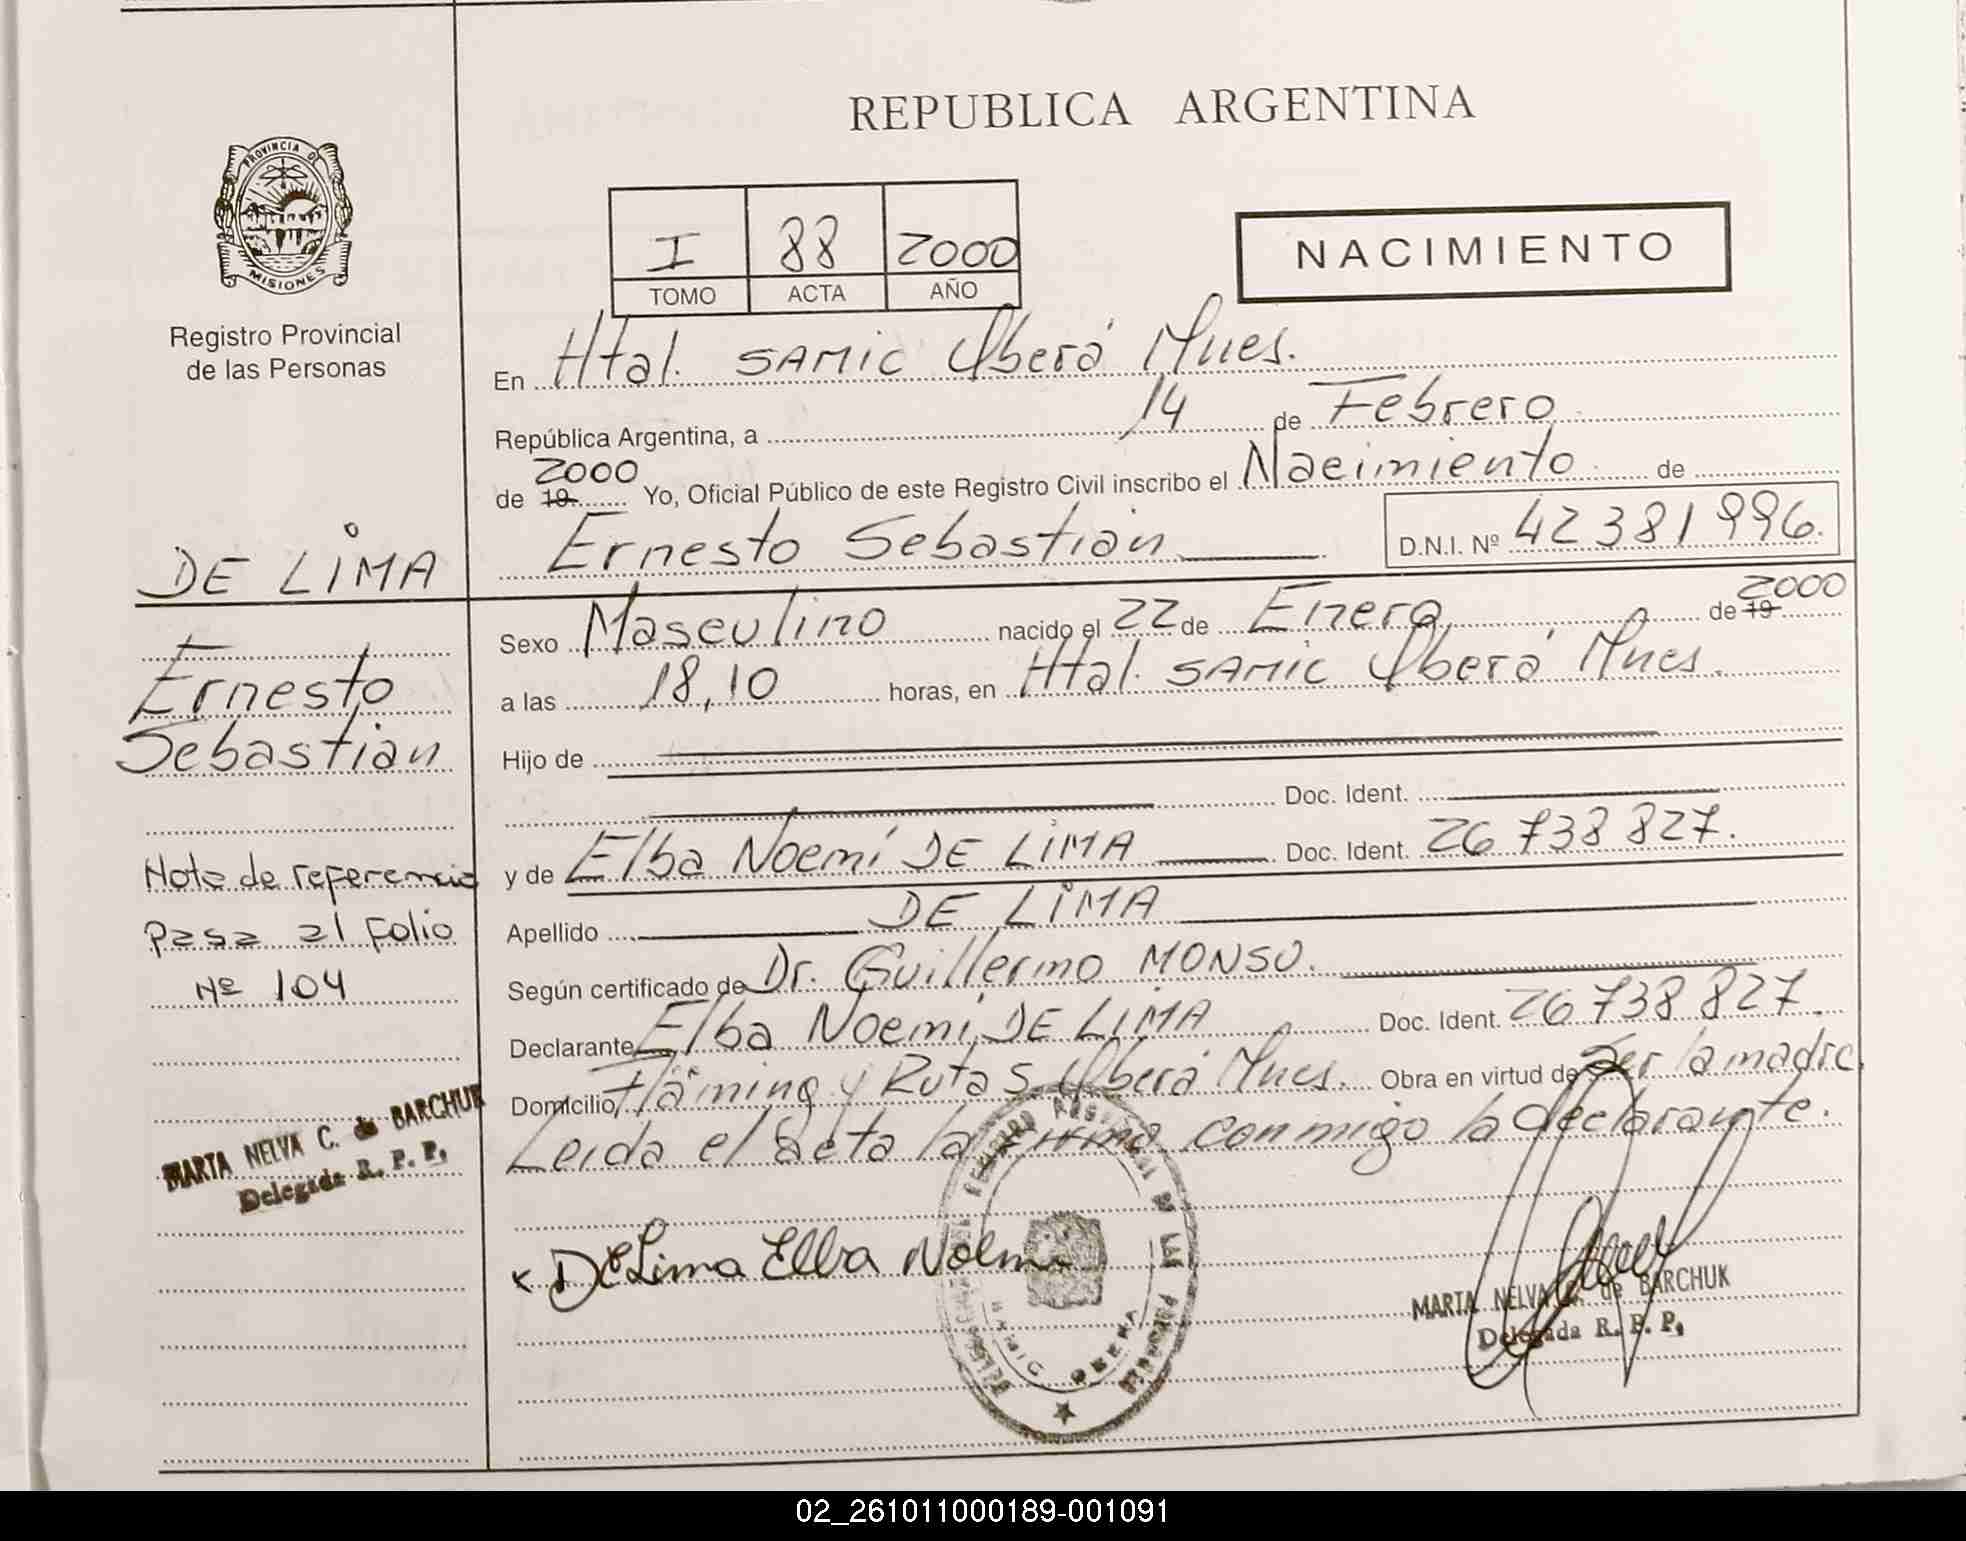 REPUBLICA ARGENTINA
PROVINCIA DE
MISIONES
Registro Provincial
de las Personas
I 88 2000
TOMO ACTA AÑO
NACIMIENTO
En Htal. SAMIC Oberá Mnes.
República Argentina, a 14 de Febrero
2000
de 19 Yo, Oficial Público de este Registro Civil inscribo el Nacimiento de
Ernesto Sebastian D.N.I. Nº 42381996.
DE LIMA
Ernesto
Sebastian
Nota de referencia
Pasa al Folio
Nº 104
MARTA NELVA C. de BARCHUK
Delegada R. P. P.
Sexo Masculino nacido el 22 de Enero de 19 2000
a las 18,10 horas, en Htal. SAMIC Oberá Mnes.
Hijo de
Doc. Ident.
y de Elba Noemí DE LIMA Doc. Ident. 26738827.
Apellido DE LIMA
Según certificado de Dr. Guillermo MONSO.
Declarante Elba Noemi DE LIMA Doc. Ident. 26738827.
Domicilio Fláming y Ruta 5 Oberá Mnes. Obra en virtud de Ser la madre.
Leida el acta la firma conmigo la declarante.
x De Lima Elba Noemi
REGISTRO PROVINCIAL DE LAS PERSONAS
OBERA
MARTA NELVA C. de BARCHUK
Delegada R. P. P.
02_261011000189-001091